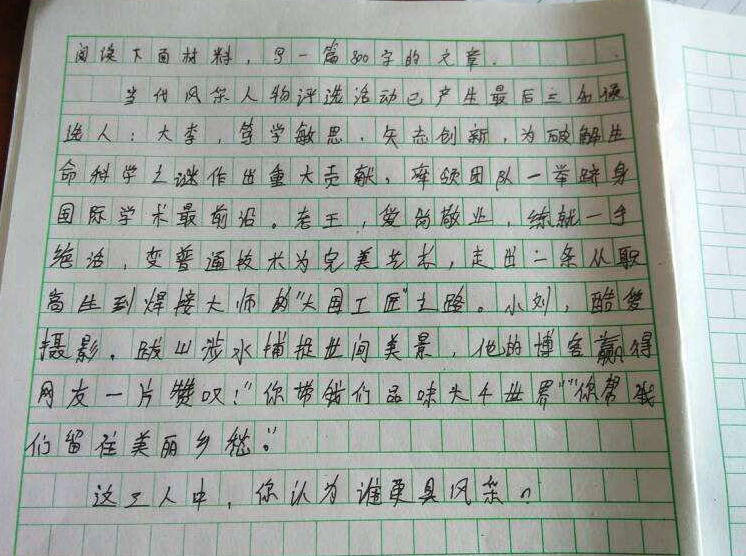 阅读下面材料，写一篇800字的文章。
当代风采人物评选活动已产生最后三名候
选人：大李，笃学敏思，矢志创新，为破解生
命科学之谜作出重大贡献，率领团队一举跻身
国际学术最前沿。老王，爱岗敬业，练就一手
绝活，变普通技术为完美艺术，走出一条从职
高生到焊接大师的“大国工匠”之路。小刘，酷爱
摄影，跋山涉水捕捉世间美景，他的博客赢得
网友一片赞叹！“你带我们品味大千世界”“你帮我
们留住美丽乡愁”。
这三人中，你认为谁更具风采？